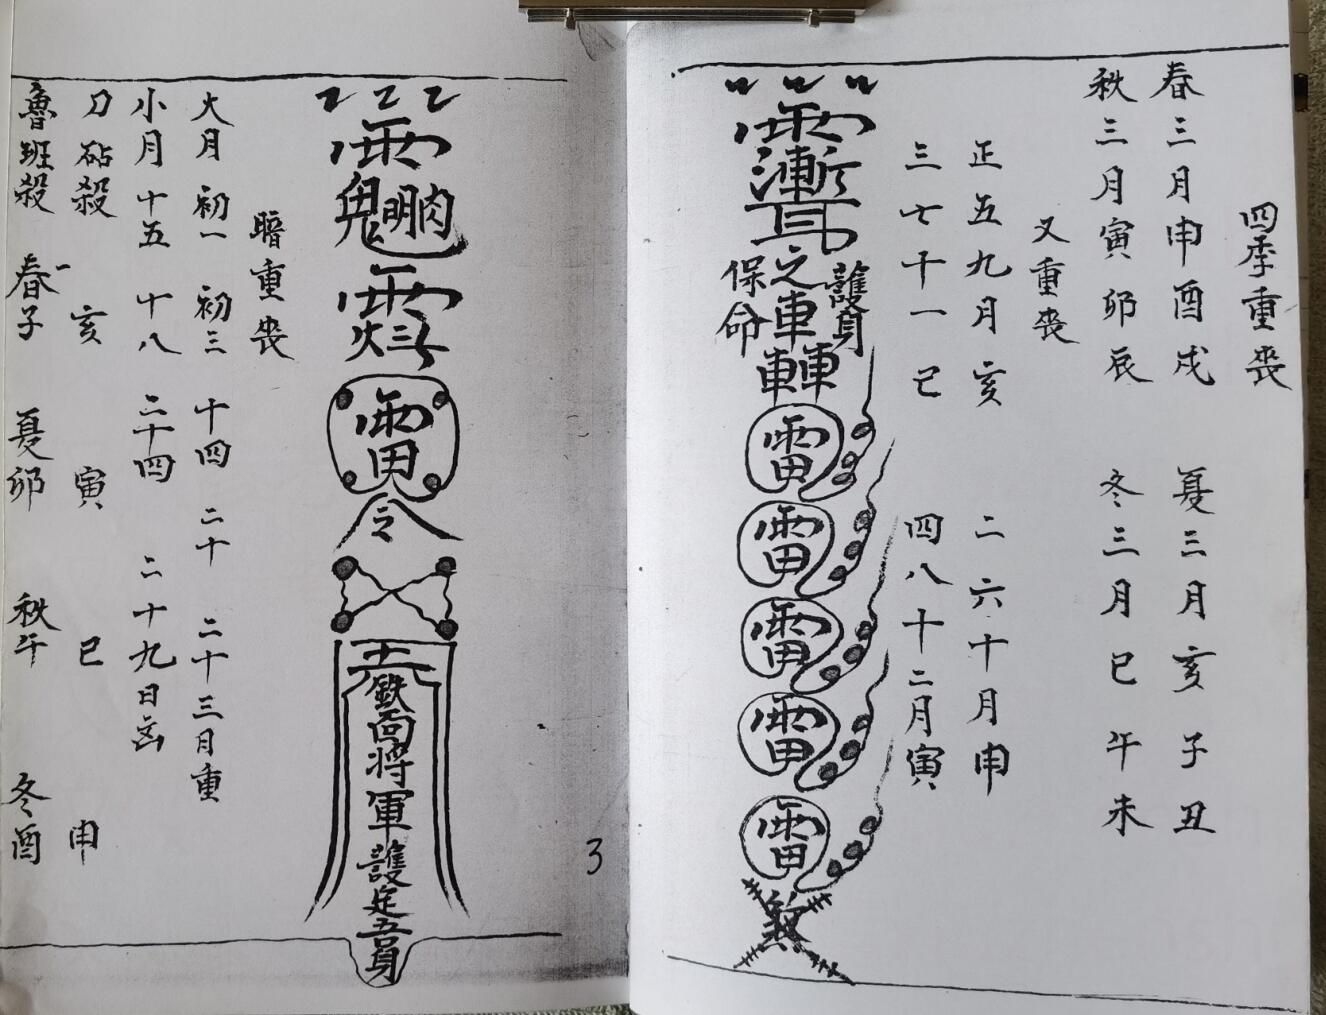 四季重丧
春三月申酉戌 夏三月亥子丑
秋三月寅卯辰 冬三月巳午未
又重丧
正五九月亥 二六十月申
三七十一巳 四八十二月寅
護身
之
保命
雷
雷
雷
雷
雷
煞
3
雷
令
鉄面将軍護定吾身
暗重丧
大月初一初三十四二十二十三月重
小月十五十八二十四二十九日凶
刀砧殺 亥 寅 巳 申
魯班殺 春子 夏卯 秋午 冬酉